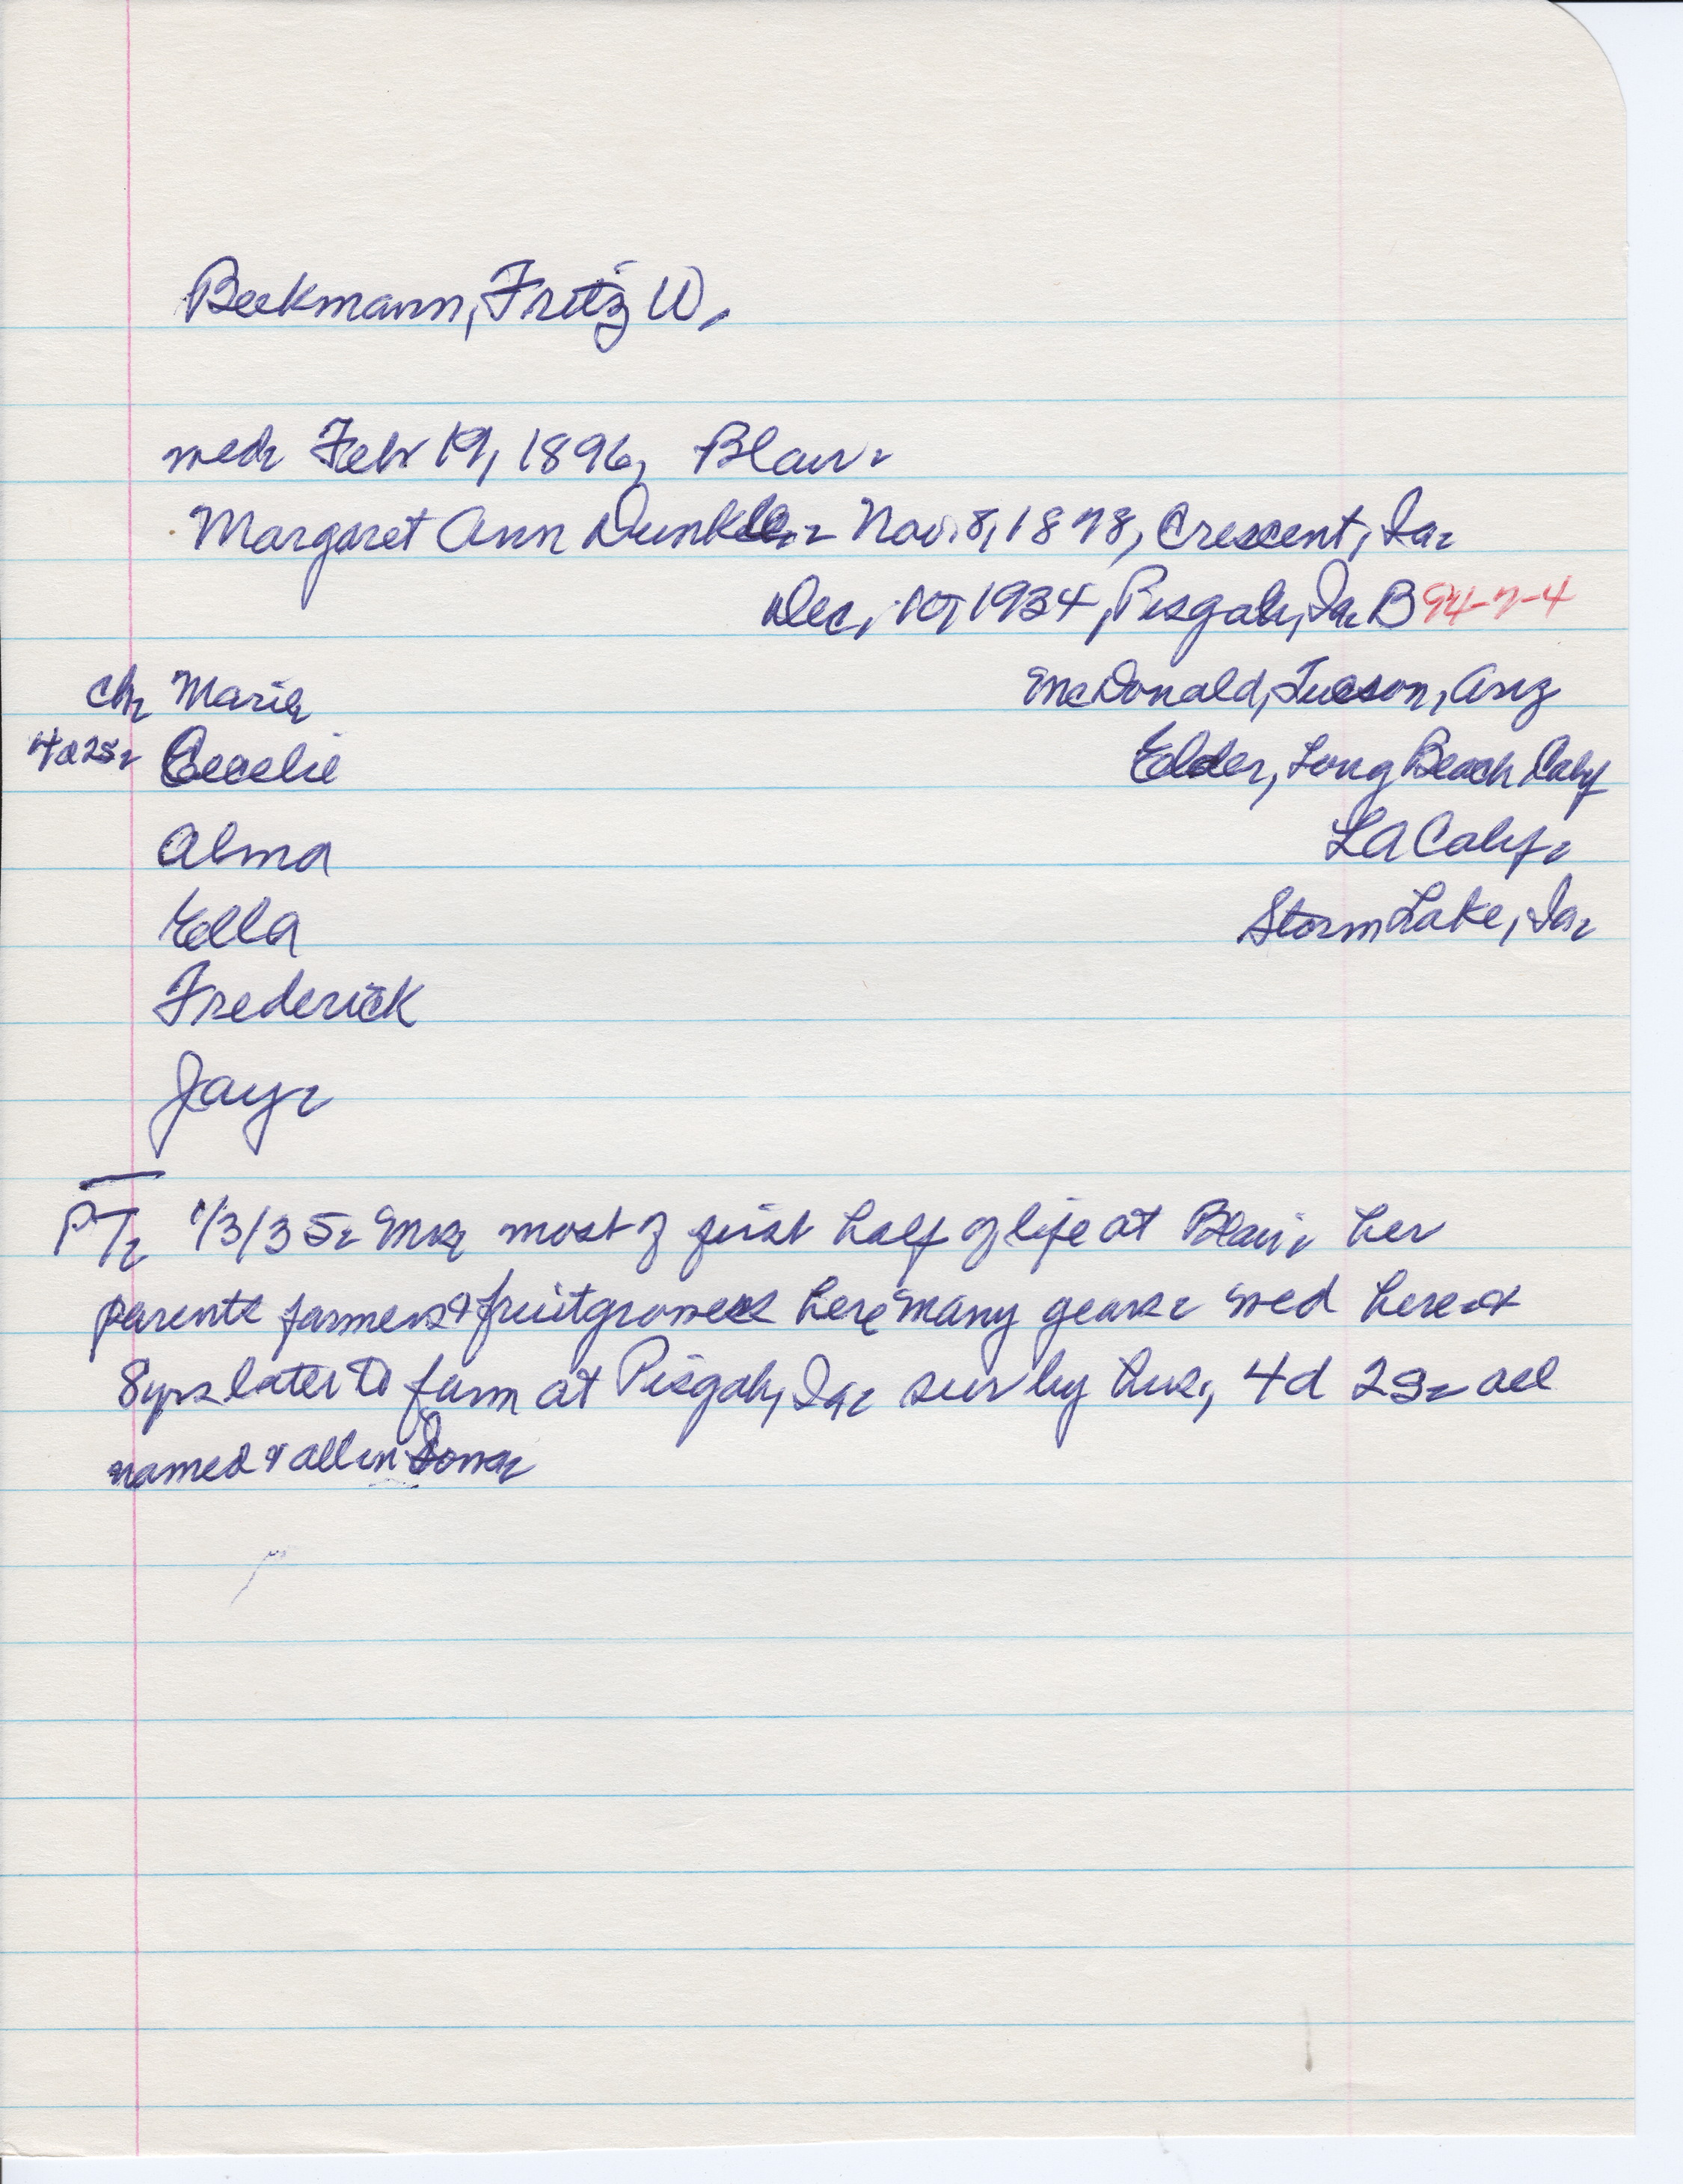 Beekmann, Fritz W.
med. Feb. 19, 1896, Blair.
Margaret Ann Dunkle. - Nov. 8, 1878, Crescent, Ia.
Dec. 10, 1934, Pisgah, Ia. B 94-7-4
ch. Marie McDonald, Tucson, Ariz
4d 2s. Cecelie Edder, Long Beach Calif
Alma LA Calif.
Ella Storm Lake, Ia.
Frederick
Jay.
PT. 1/3/35. most of first half of life at Blair. her
parents farmers & fruitgrowers here many years. med here &
8 yrs later to farm at Pisgah, Ia. surv by hus., 4d 2s. all
named & all in Iowa.